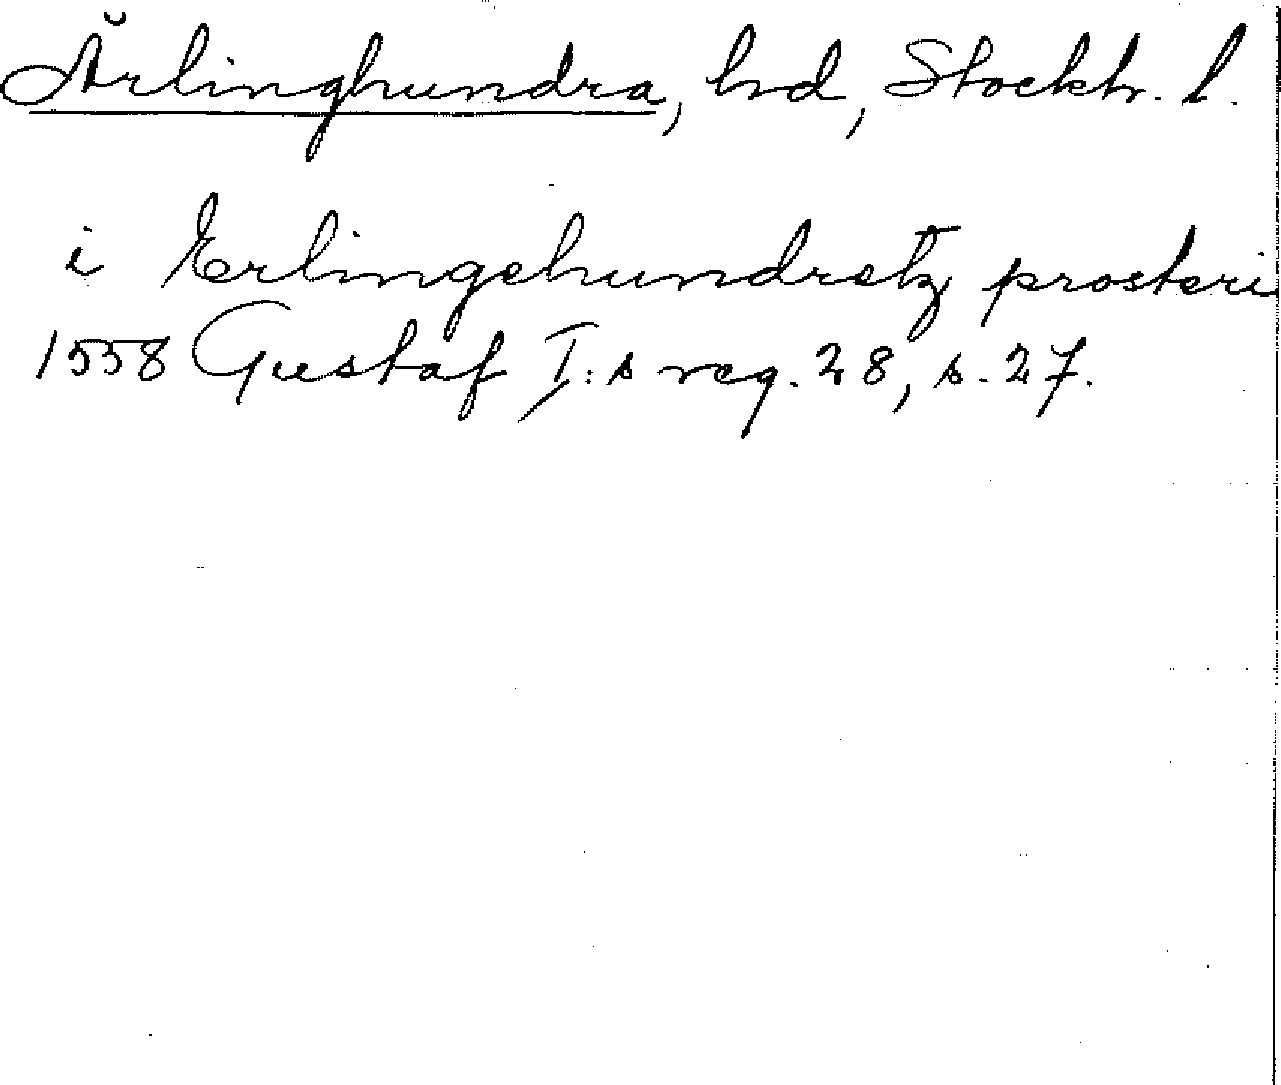 Ärlinghundra, hd, Stockh. l.
i Erlingehundretz prosteri
1558 Gustaf I:s reg. 28, s. 27.